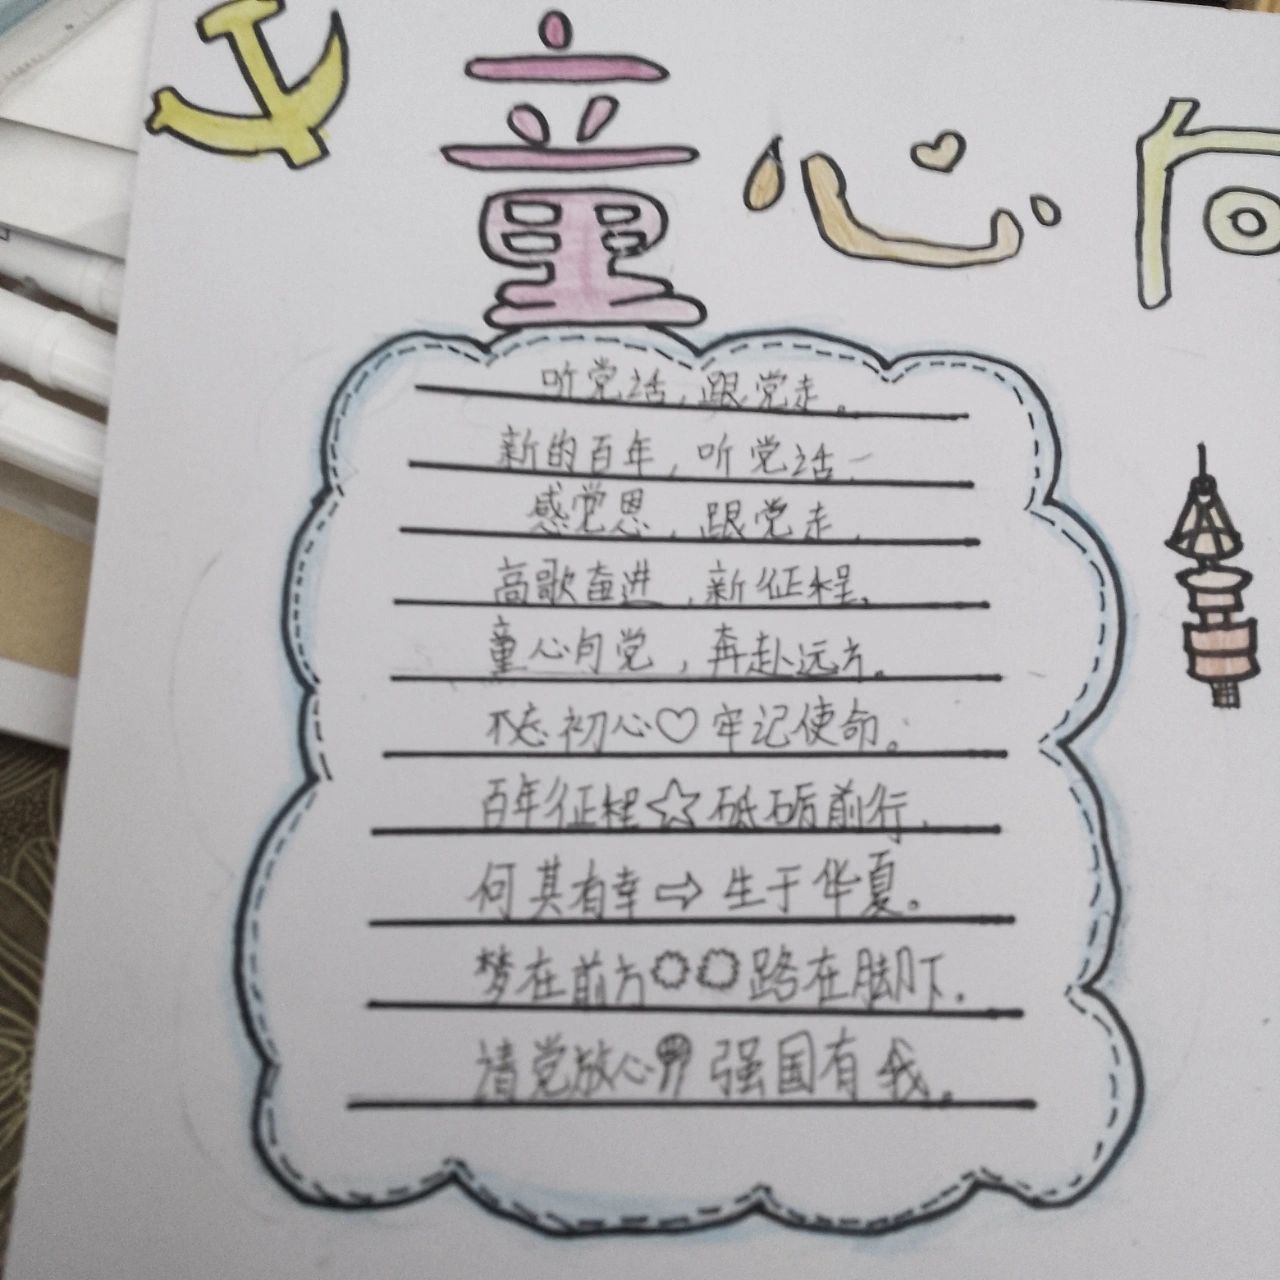 童心向
听党话,跟党走。
新的百年,听党话,
感党恩,跟党走,
高歌奋进,新征程,
童心向党,奔赴远方。
不忘初心♡牢记使命。
百年征程☆砥砺前行.
何其有幸⇨生于华夏。
梦在前方 路在脚下.
请党放心 强国有我.